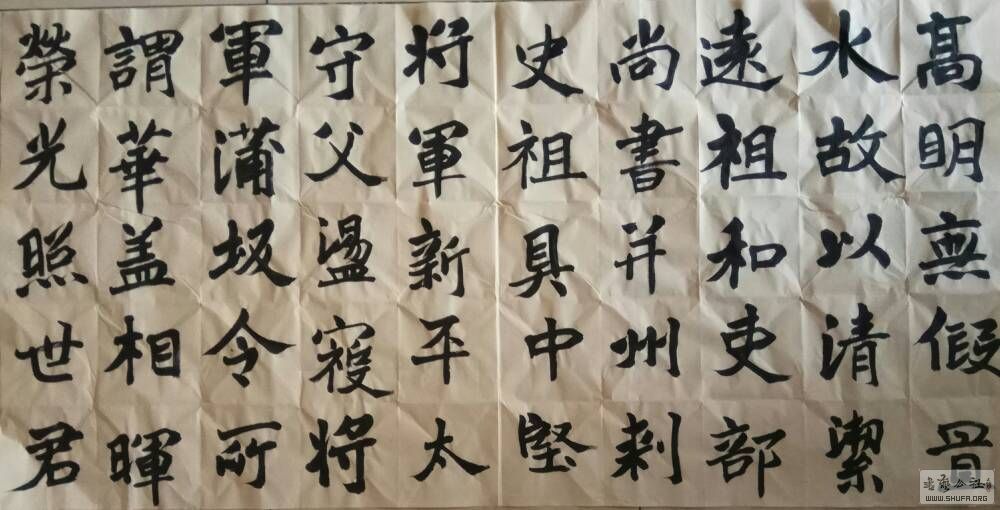 高明無假
水故以清潔
遠祖和吏部
尚書并州刺
史祖具中堅
将軍新平太
守父盪寇将
軍蒲坂令所
謂華盖相暉
榮光照世君
WWW.SHUFA.ORG